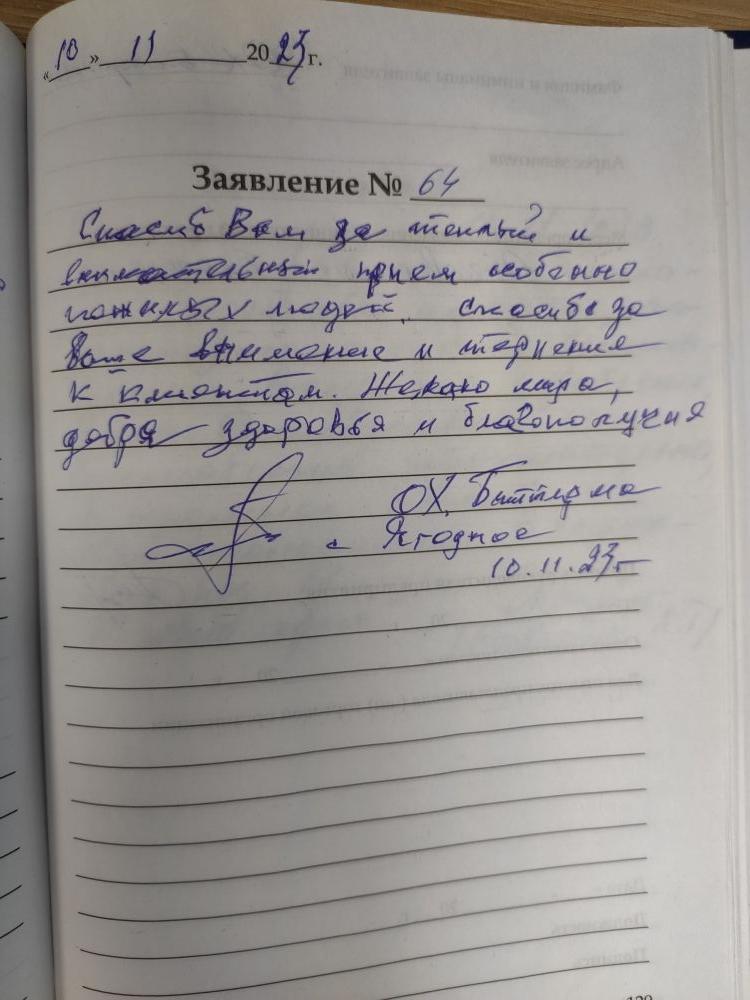 «10» 11 2023 г.
Заявление № 64
Спасибо Вам за теплый и
внимательный прием особенно
пожилых людей. Спасибо за
Ваше внимание и терпение
к клиентам. Желаю мира,
добра здоровья и благополучия
ОХ.
с Ягодное
10.11.23г